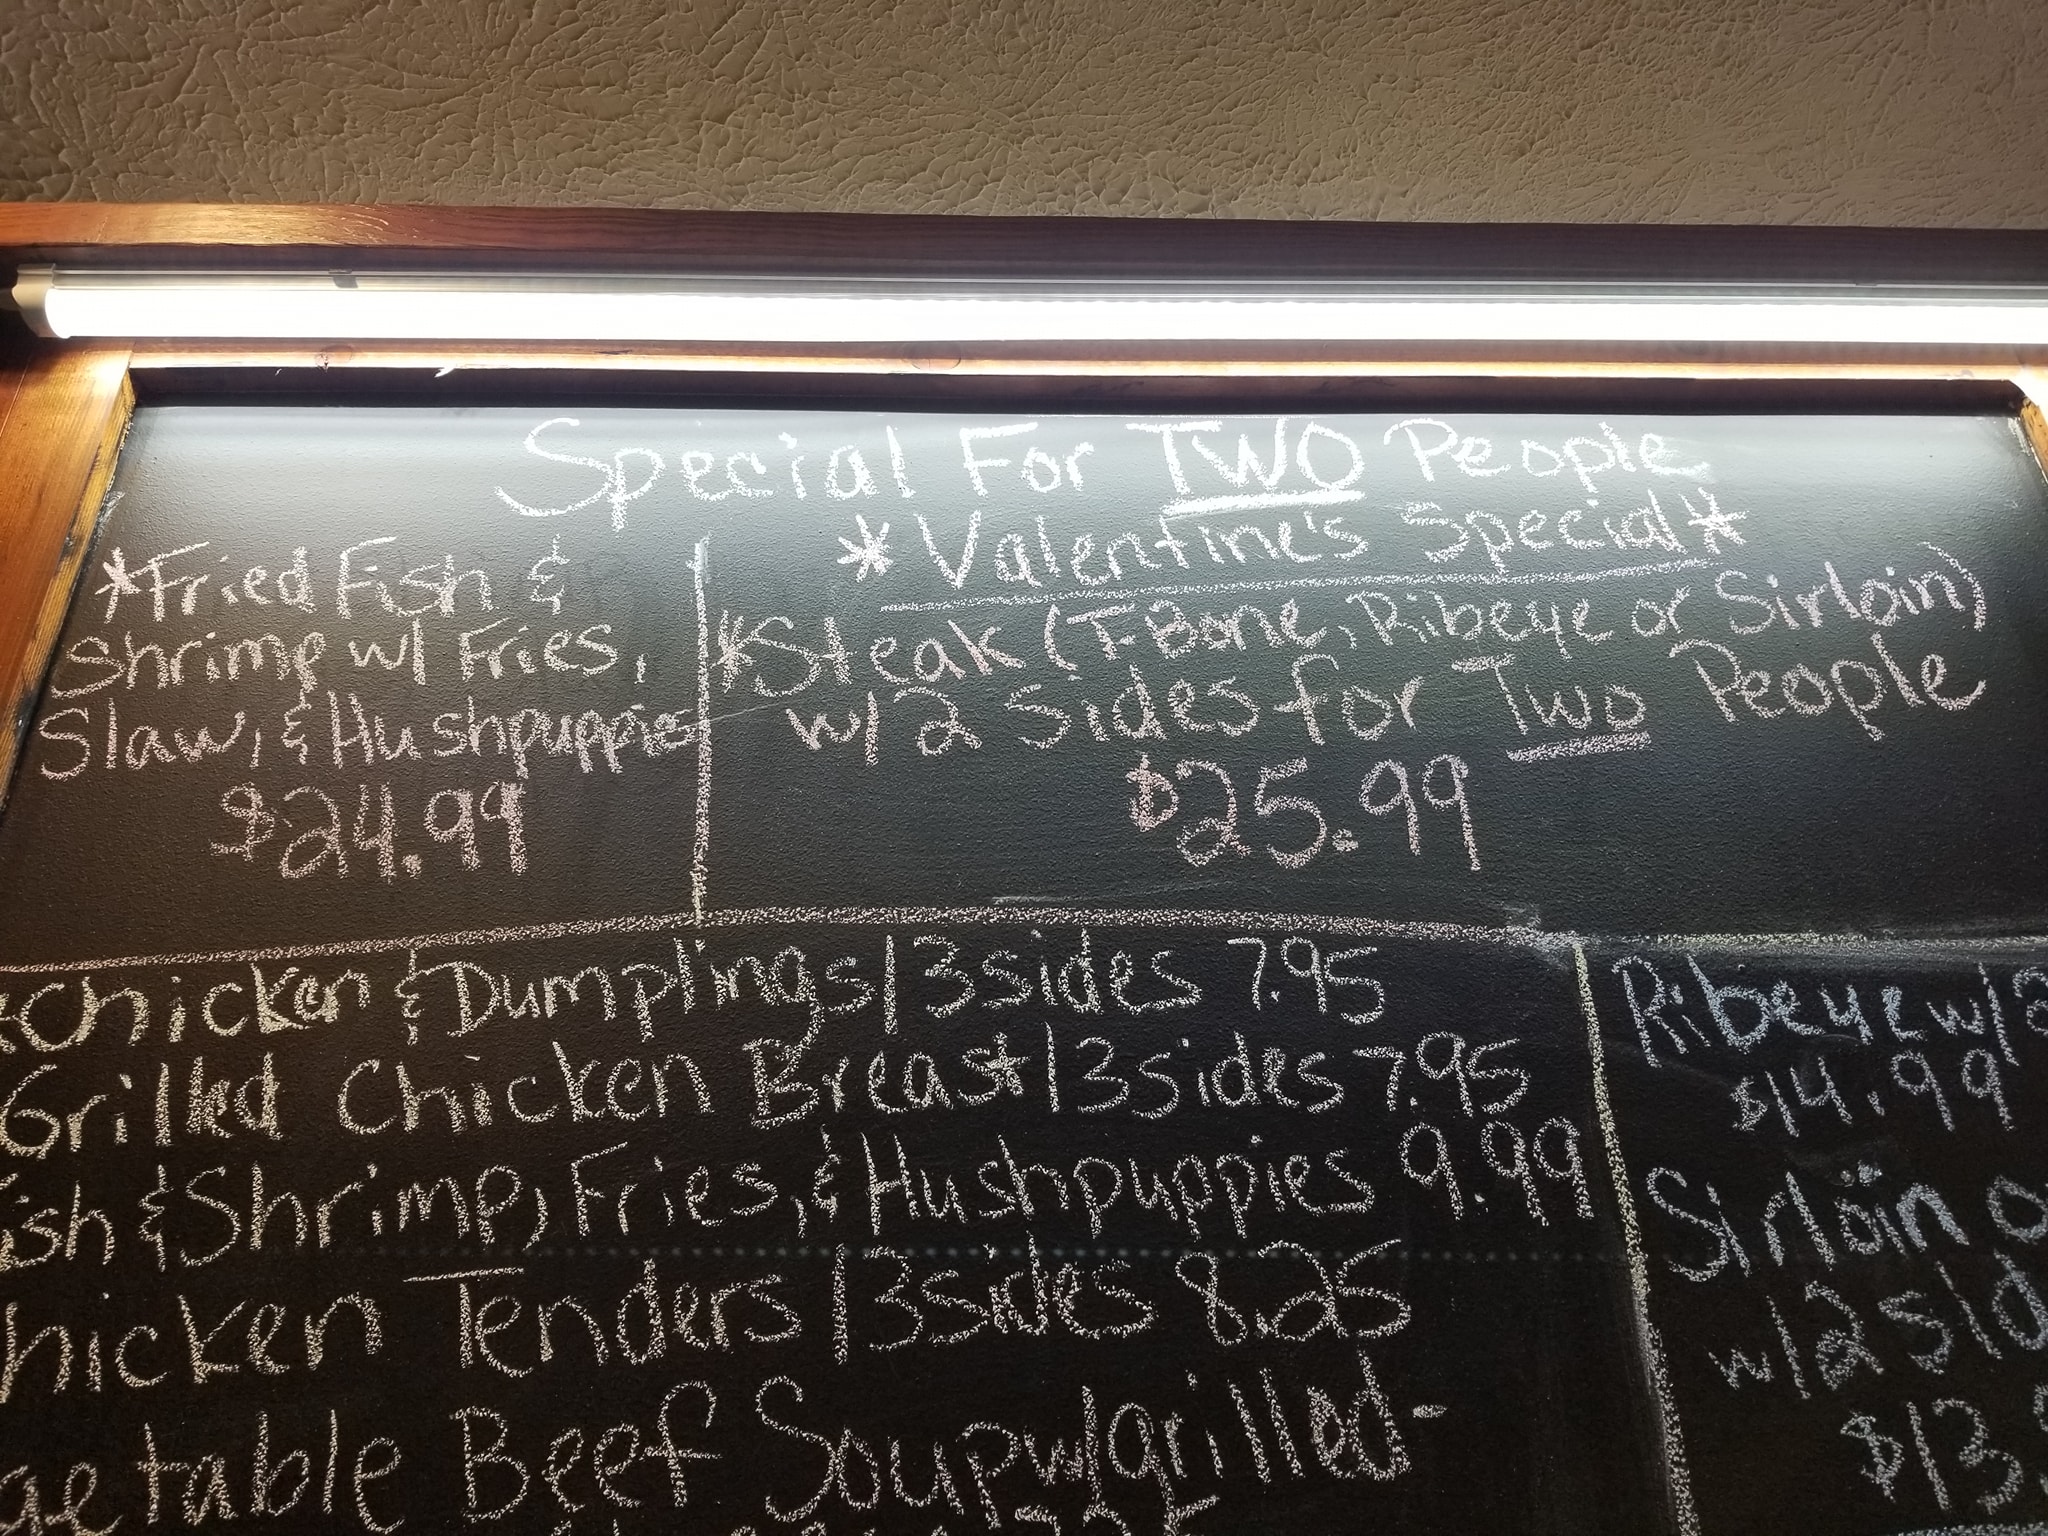 Special For TWO People
*Fried Fish &
Shrimp w/ Fries,
Slaw, & Hushpuppies
$24.99
*Valentine's Special*
*Steak (T-Bone, Ribeye or Sirloin)
w/2 Sides for Two People
$25.99
*Chicken & Dumplings/3sides 7.95
Grilled Chicken Breast/3sides 7.95
ish & Shrimp, Fries, & Hushpuppies 9.99
hicken Tenders/3sides 8.25
getable Beef Soup w/grilled-
Ribeye w/2
$14.99
Sirloin o
w/2 sid
$13.